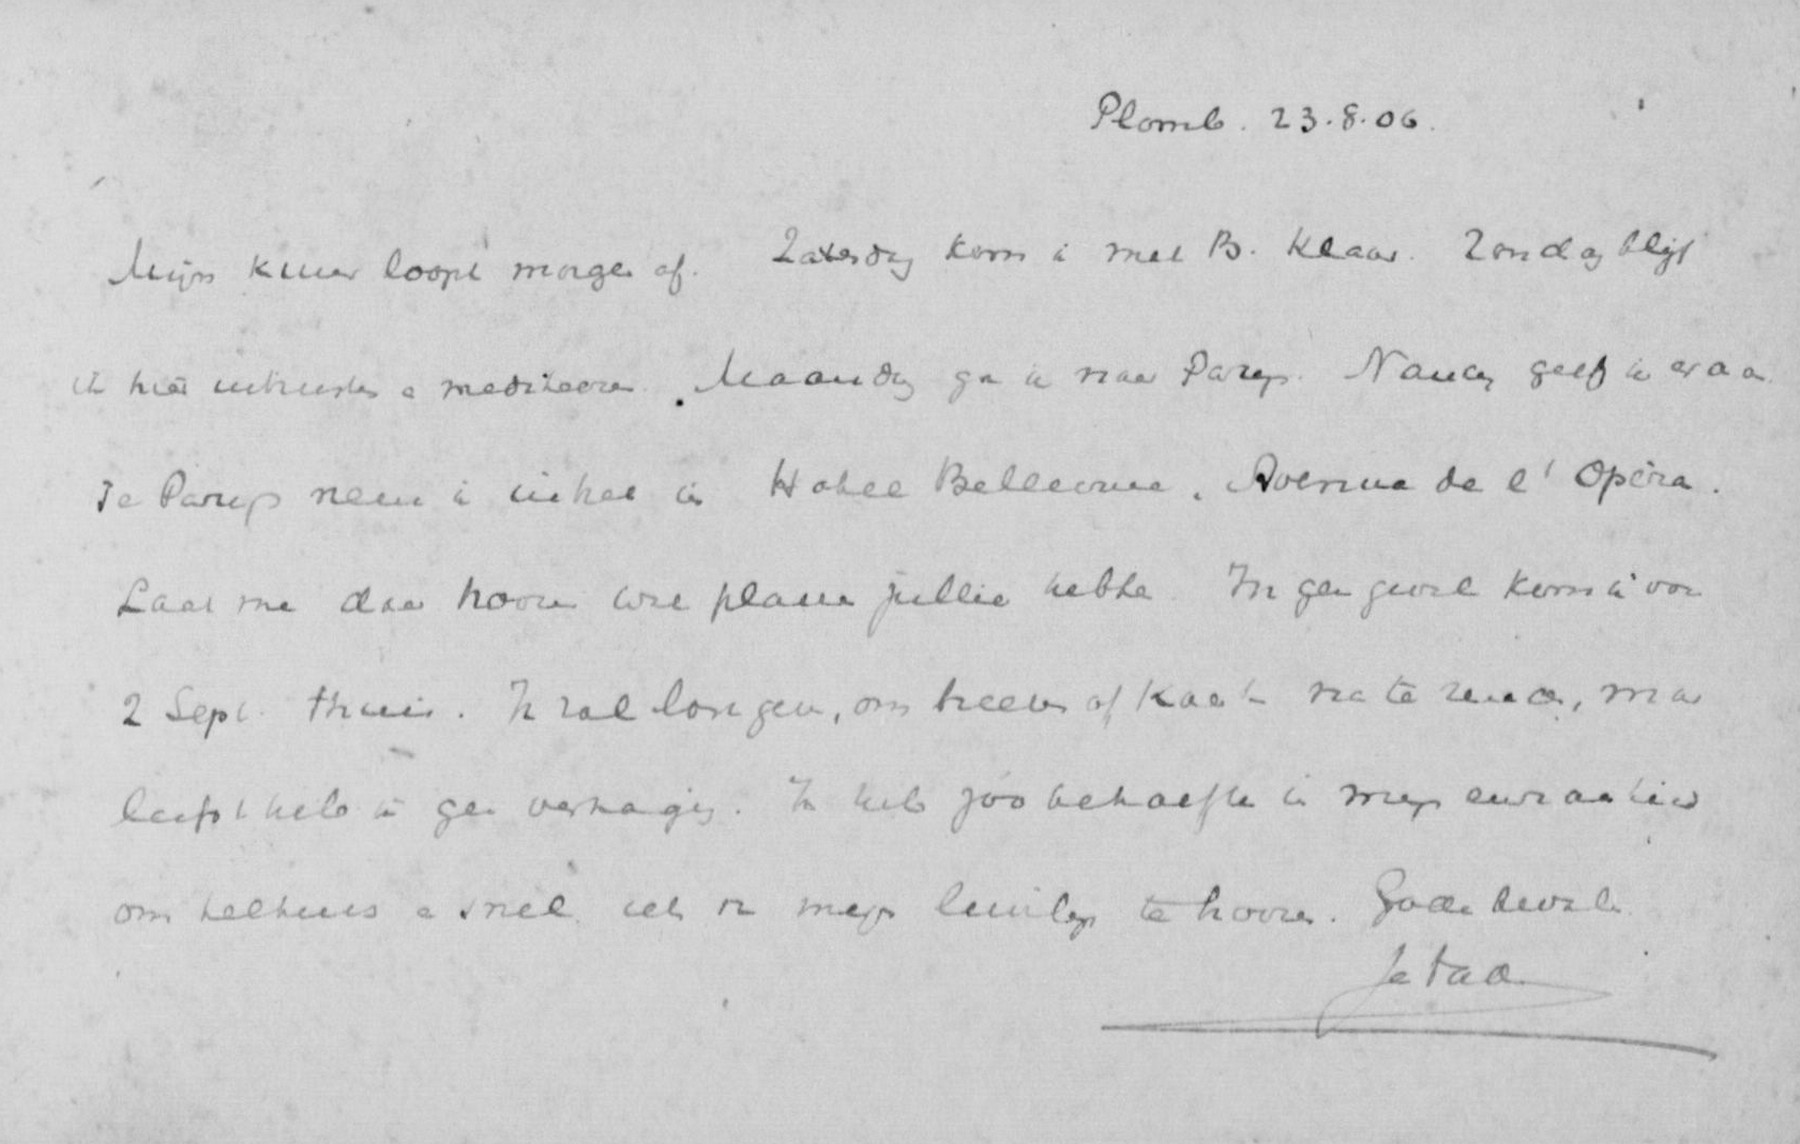 Plomb. 23.8.06.
Mijn kuur loopt morgen af. Zaterdag kom ik met B. klaar. Zondag blijf
ik hier uitrusten en mediteeren. Maandag ga ik naar Parijs. Nancy geef ik eraan.
Te Parijs neem ik intrek in Hotel Bellevue, Avenue de l'Opéra.
Laat me daar hooren wat plannen jullie hebben. In geen geval kom ik voor
2 Sept. thuis. Ik zal om of te maar
liefst heb ik geen Ik heb behoefte in mijn
om en snel iets van mijn te hooren. Gode bevolen
Je Vad